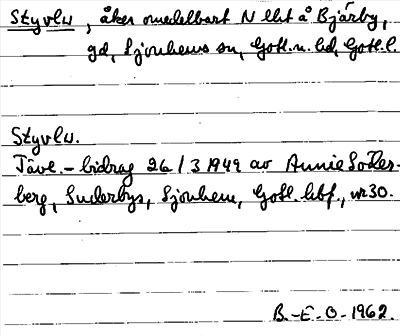 Styvlu, åker omedelbart N lht å Bjärby,
gd, Sjonhems sn, Gotl. n. hd, Gotl. l.
Styvlu.
Tävl.-bidrag 26/3 1949 av Annie Söder-
berg, Suderbys, Sjonhem, Gotl. hbf., nr 30.
B.-E. O-1962.